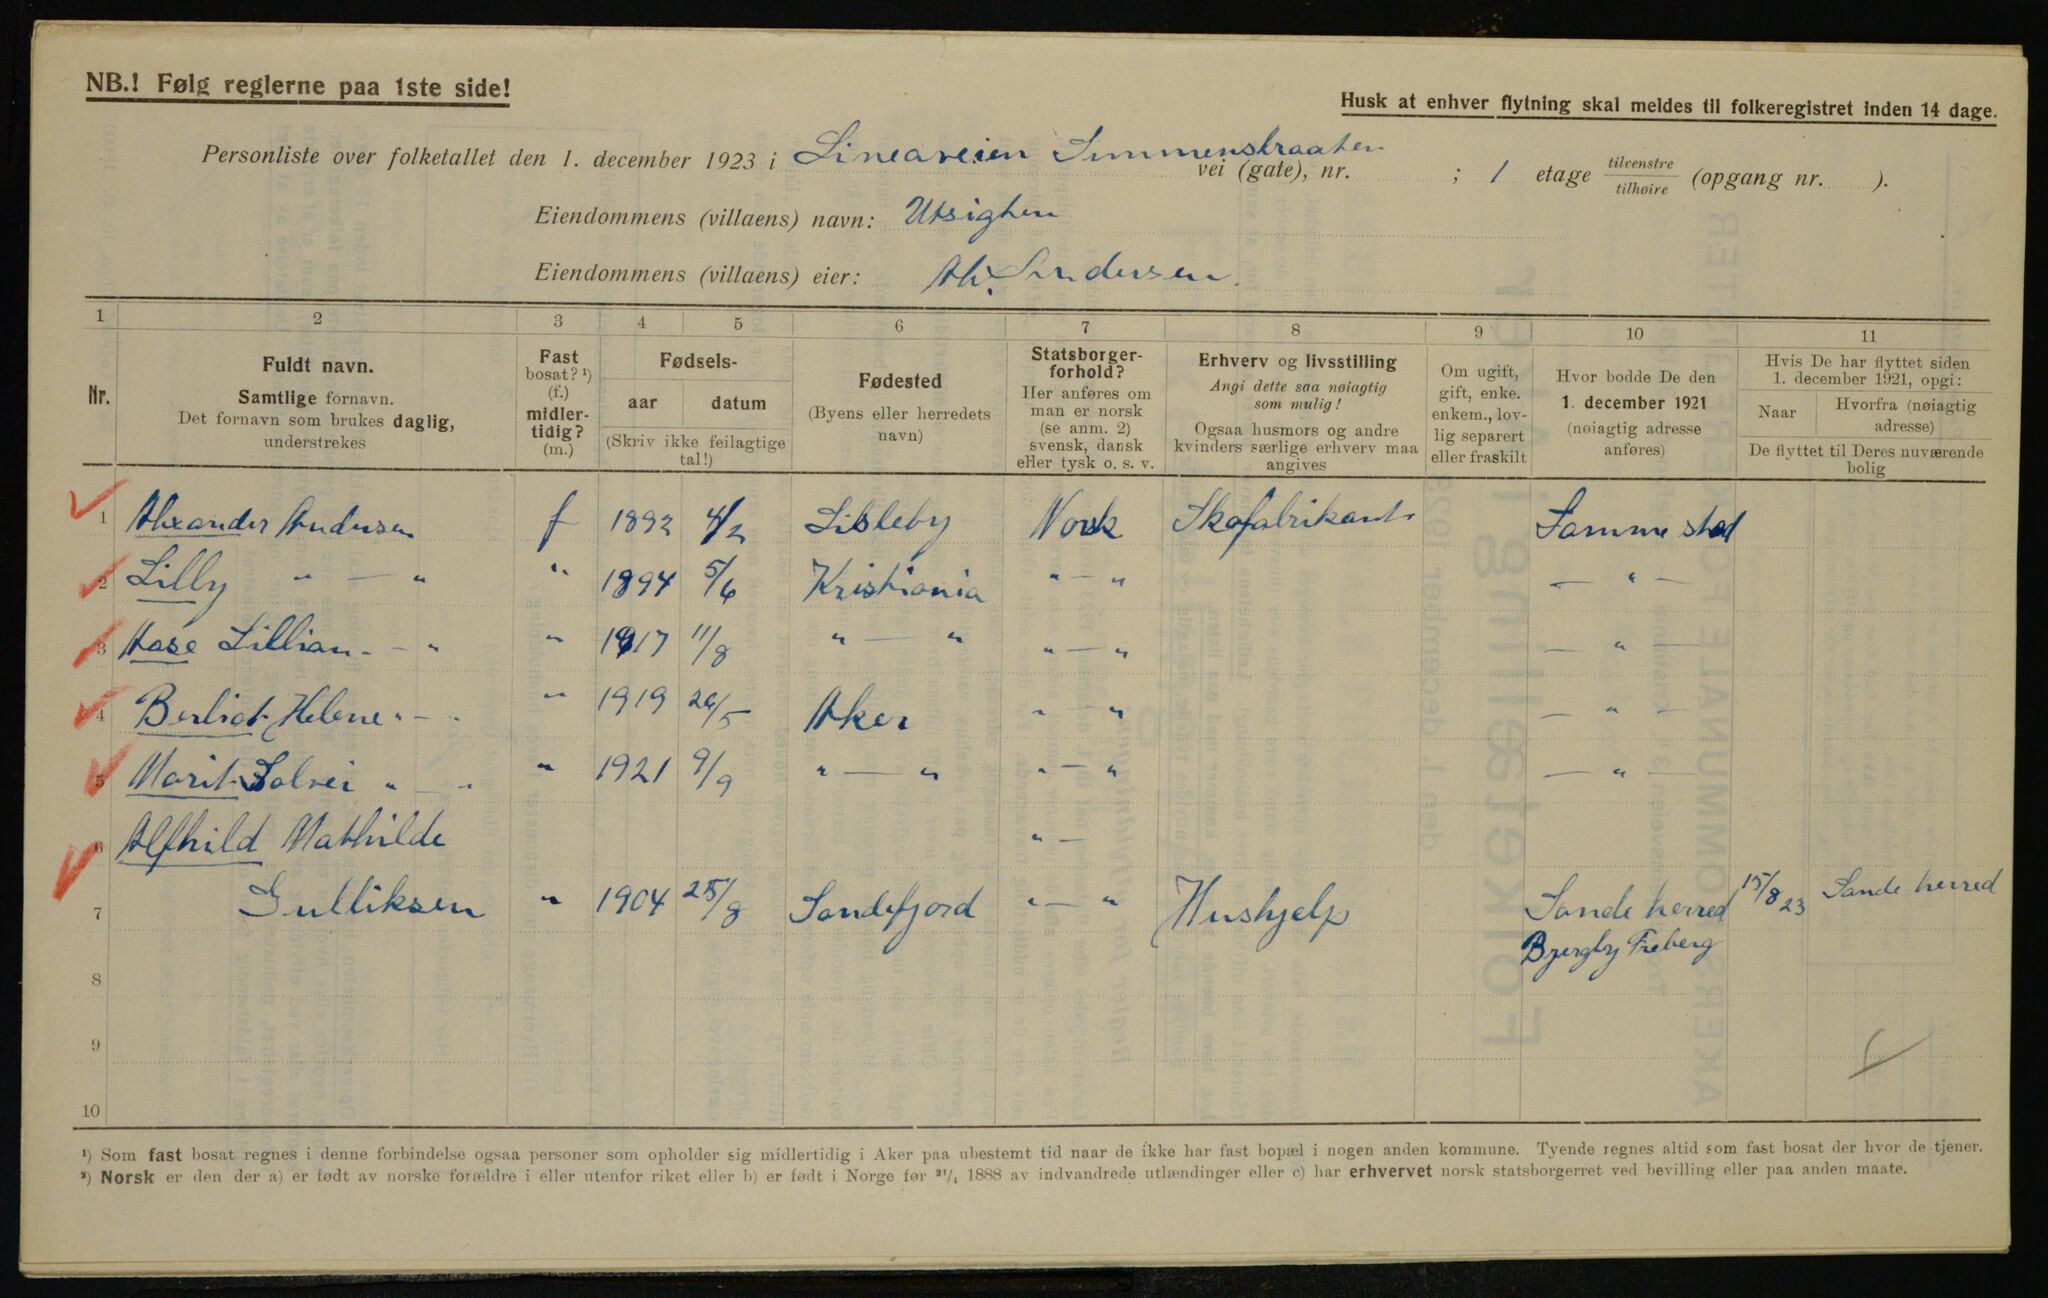 NB.! Følg reglerne paa 1ste side!
Husk at enhver flytning skal meldes til folkeregistret inden 14 dage.
Personliste over folketallet den 1. december 1923 i Lineaveien vei (gate), nr. ; 1 etage tilvenstre tilhøire (opgang nr. ).
Eiendommens (villaens) navn: Utsigten
Eiendommens (villaens) eier: Andersen.
1 2 3 4 5 6 7 8 9 10 11
Nr.
Fuldt navn.
Samtlige fornavn.
Det fornavn som brukes daglig,
understrekes
Fast
bosat? ¹)
(f.)
midler-
tidig?
(m.)
Fødsels-
aar datum
(Skriv ikke feilagtige
tal!)
Fødested
(Byens eller herredets
navn)
Statsborger-
forhold?
Her anføres om
man er norsk
(se anm. 2)
svensk, dansk
eller tysk o. s. v.
Erhverv og livsstilling
Angi dette saa nøiagtig
som mulig!
Ogsaa husmors og andre
kvinders særlige erhverv maa
angives
Om ugift,
gift, enke.
enkem., lov-
lig separert
eller fraskilt
Hvor bodde De den
1. december 1921
(nøiagtig adresse
anføres)
Hvis De har flyttet siden
1. december 1921, opgi:
Naar
Hvorfra (nøiagtig
adresse)
De flyttet til Deres nuværende
bolig
1 Alexander Andersen f 1892 4/2 Lisleby Norsk Skofabrikant Samme sted
2 Lilly " — " " 1894 5/6 Kristiania " — " — " —
3 Aase Lillian - - " " 1917 11/8 " — " " — " — " —
4 Berliot Helene " - " " 1919 26/5 Aker " — " — " —
5 Marit Solvei " — " " 1921 9/9 " — " " — " — " —
6 Alfhild Mathilde " —
7 Gulliksen " 1904 25/8 Sandefjord " — " Hushjelp Sande herred 15/8 23 Sande herred
Bjergby Freberg
8
9
10
¹) Som fast bosat regnes i denne forbindelse ogsaa personer som opholder sig midlertidig i Aker paa ubestemt tid naar de ikke har fast bopæl i nogen anden kommune. Tyende regnes altid som fast bosat der hvor de tjener.
²) Norsk er den der a) er født av norske forældre i eller utenfor riket eller b) er født i Norge før ²¹/₄ 1888 av indvandrede utlændinger eller c) har erhvervet norsk statsborgerret ved bevilling eller paa anden maate.